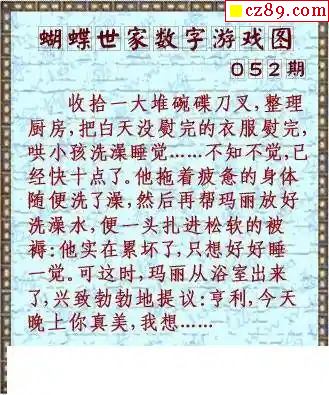 cz89.com
蝴蝶世家数字游戏图
052期
收拾一大堆碗碟刀叉,整理
厨房,把白天没熨完的衣服熨完,
哄小孩洗澡睡觉……不知不觉,已
经快十点了。他拖着疲惫的身体
随便洗了澡,然后再帮玛丽放好
洗澡水,便一头扎进松软的被
褥:他实在累坏了,只想好好睡
一觉。可这时,玛丽从浴室出来
了,兴致勃勃地提议:亨利,今天
晚上你真美,我想……